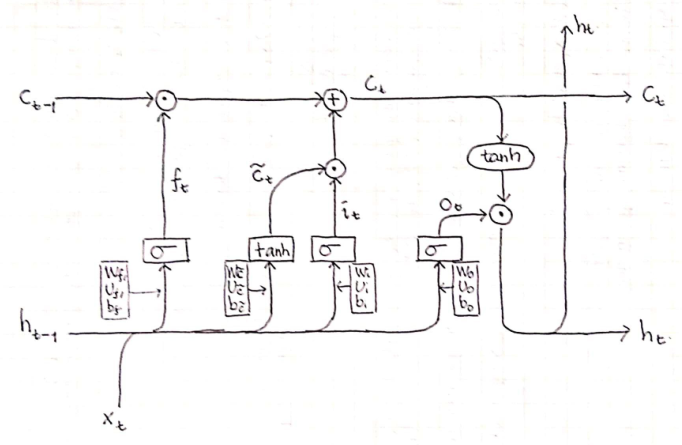 hₜ
Cₜ₋₁
·
+
Cₜ
Cₜ
tanh
fₜ
c̃ₜ
·
iₜ
oₜ
·
σ
tanh
σ
σ
W_f,
U_f,
b_f
W_c̃
U_c̃
b_c̃
Wᵢ
Uᵢ
bᵢ
W₀
U₀
b₀
hₜ₋₁
hₜ
xₜ